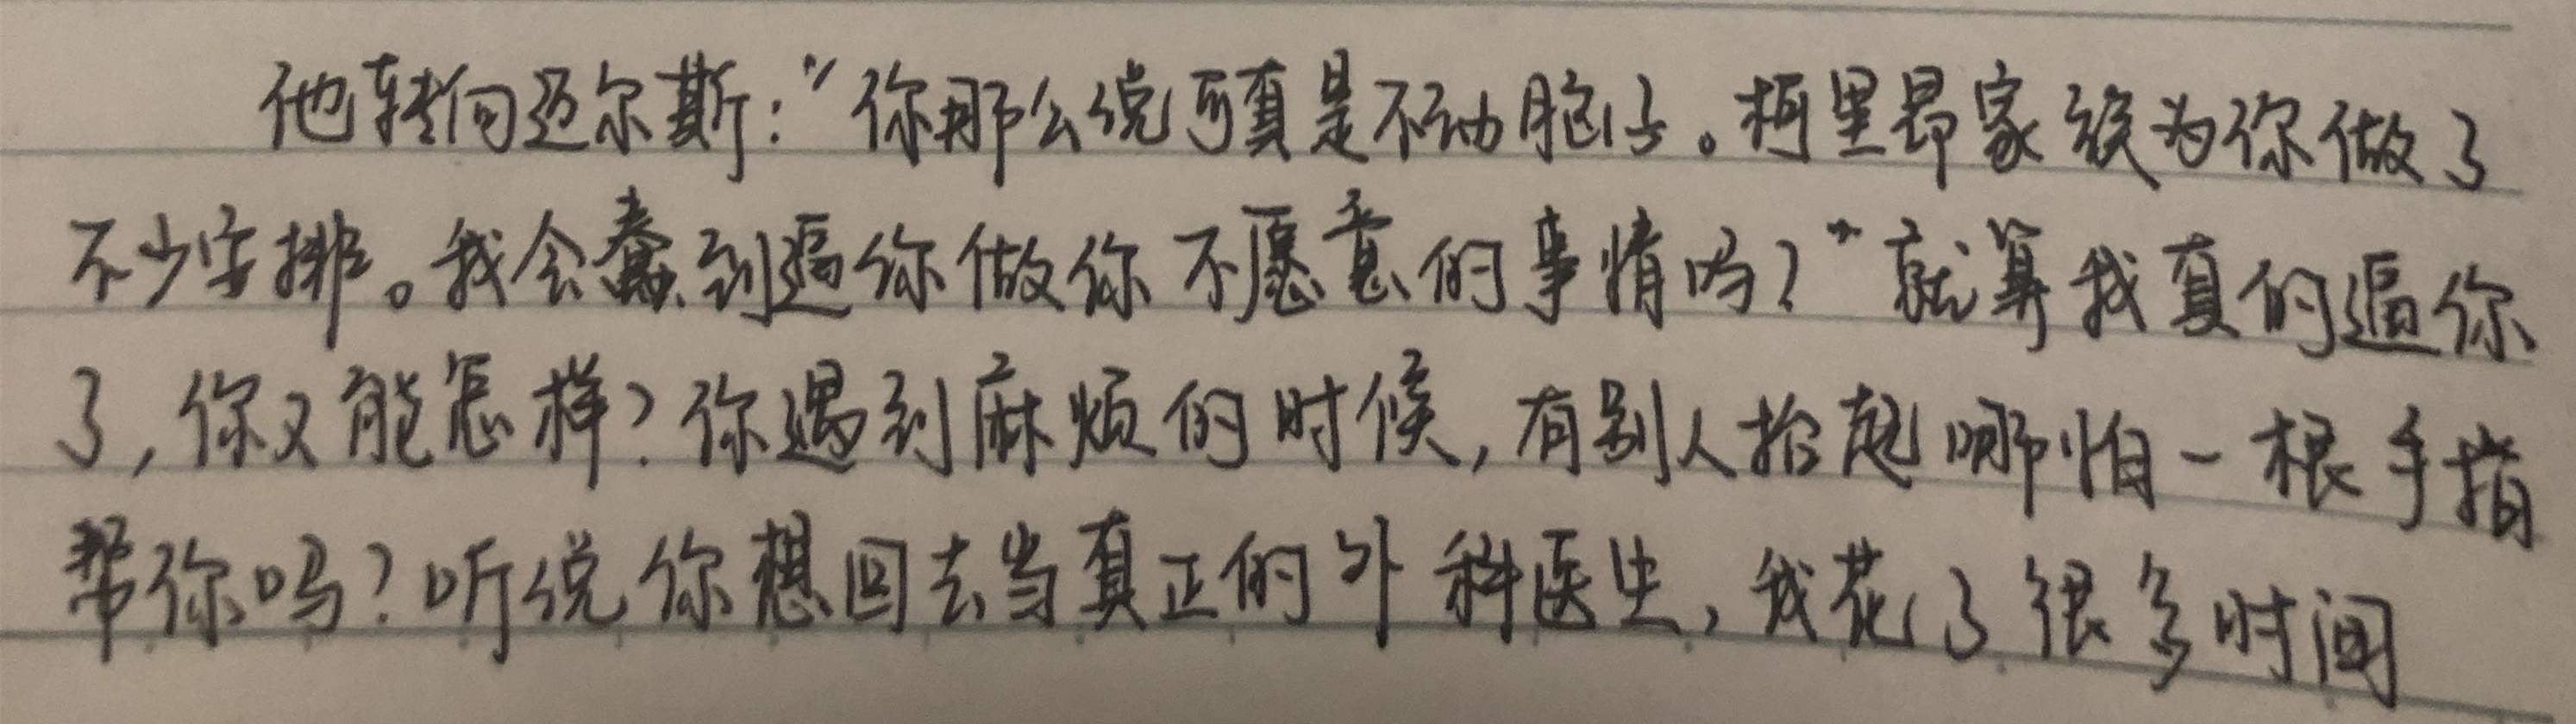 他转向迈尔斯：“你那么说可真是不动脑子。柯里昂家族为你做了
不少安排。我会蠢到逼你做你不愿意的事情吗？“就算我真的逼你
了，你又能怎样？你遇到麻烦的时候，有别人抬起哪怕一根手指
帮你吗？听说你想回去当真正的外科医生，我花了很多时间